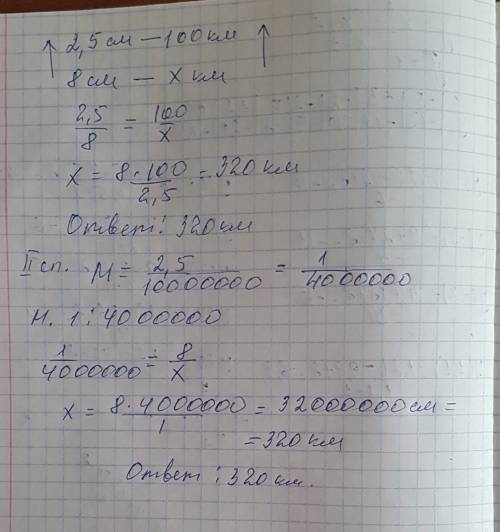 2,5 см — 100 км
8 см — x км
2,5/8 = 100/x
x = 8·100/2,5 = 320 км
Ответ: 320 км
II сп. М = 2,5/10000000 = 1/4000000
М. 1:4000000
1/4000000 = 8/x
x = 8·4000000/1 = 32000000 см =
= 320 км
Ответ: 320 км.